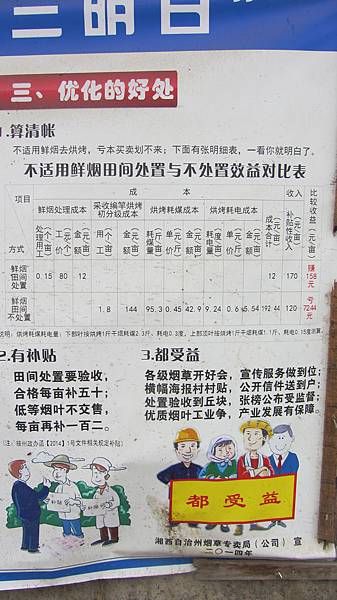 明白
三、优化的好处
1.算清帐
不适用鲜烟去烘烤，亏本买卖划不来；下面有张明细表，一看你就明白了。
不适用鲜烟田间处置与不处置效益对比表
项目 成本 收入 比较收益（元/亩）
鲜烟处理成本 采收编竿烘烤初分级成本 烘烤耗煤成本 烘烤耗电成本 成本合计（元/亩） 补贴性收入（元/亩）
方式 处理用工（个/亩） 工价（元/个） 金额（元/亩） 用工（个/亩） 金额（元/亩） 耗煤量（斤/亩） 单价（元/斤） 金额（元/亩） 耗电量（度/亩） 单价（元/度） 金额（元/亩）
鲜烟田间处置 0.15 80 12 12 170 赚158元
鲜烟田间不处置 1.8 144 95.3 0.45 42.9 9.24 0.6 5.54 192.44 120 亏72.44元
说明：烘烤耗煤耗电量：下部叶按烘烤1斤干烟耗煤2.3斤、耗电0.3度，上部叶按烘烤1斤干烟耗煤1.1斤、耗电0.15度测算。
2.有补贴
田间处置要验收，
合格每亩补五十；
低等烟叶不交售，
每亩再补一百二。
（注：按州政办函【2014】1号文件相关规定补贴）
3.都受益
各级烟草开好会，宣传服务做到位；
横幅海报村村贴，公开信件送到户；
处置验收到丘块，张榜公布受监督；
优质烟叶工业争，产业发展有保障。
补贴
补贴
都受益
湘西自治州烟草专卖局（公司）宣
二〇一四年